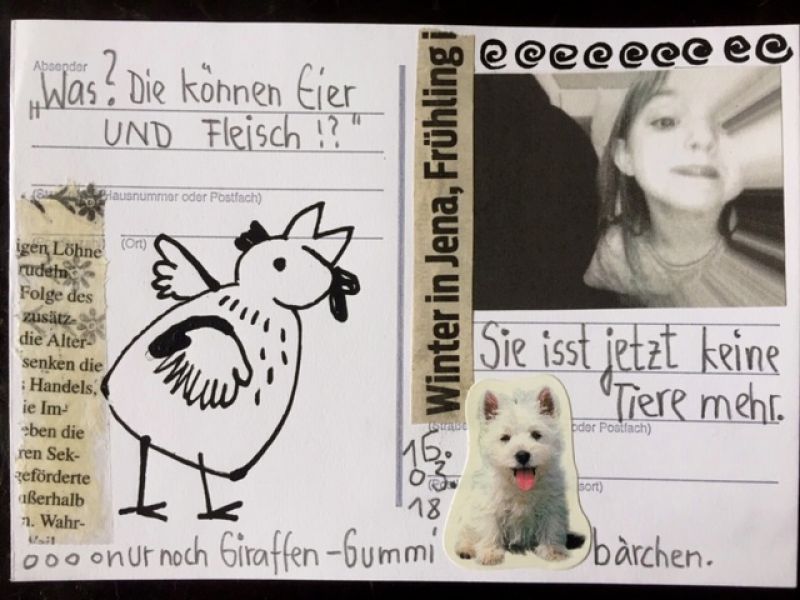 Absender
„Was? Die können Eier
UND Fleisch!?"
Hausnummer oder Postfach)
(Ort)
igen Löhne
rudeln
Folge des
zusätz-
die Alter-
senken die
Handels,
ie Im-
eben die
ren Sek-
geförderte
ußerhalb
n. Wahr-
Winter in Jena, Frühling i
Sie isst jetzt keine
Tiere mehr.
oder Postfach)
sort)
15.
03.
18
oooonur noch Giraffen-Gummi bärchen.